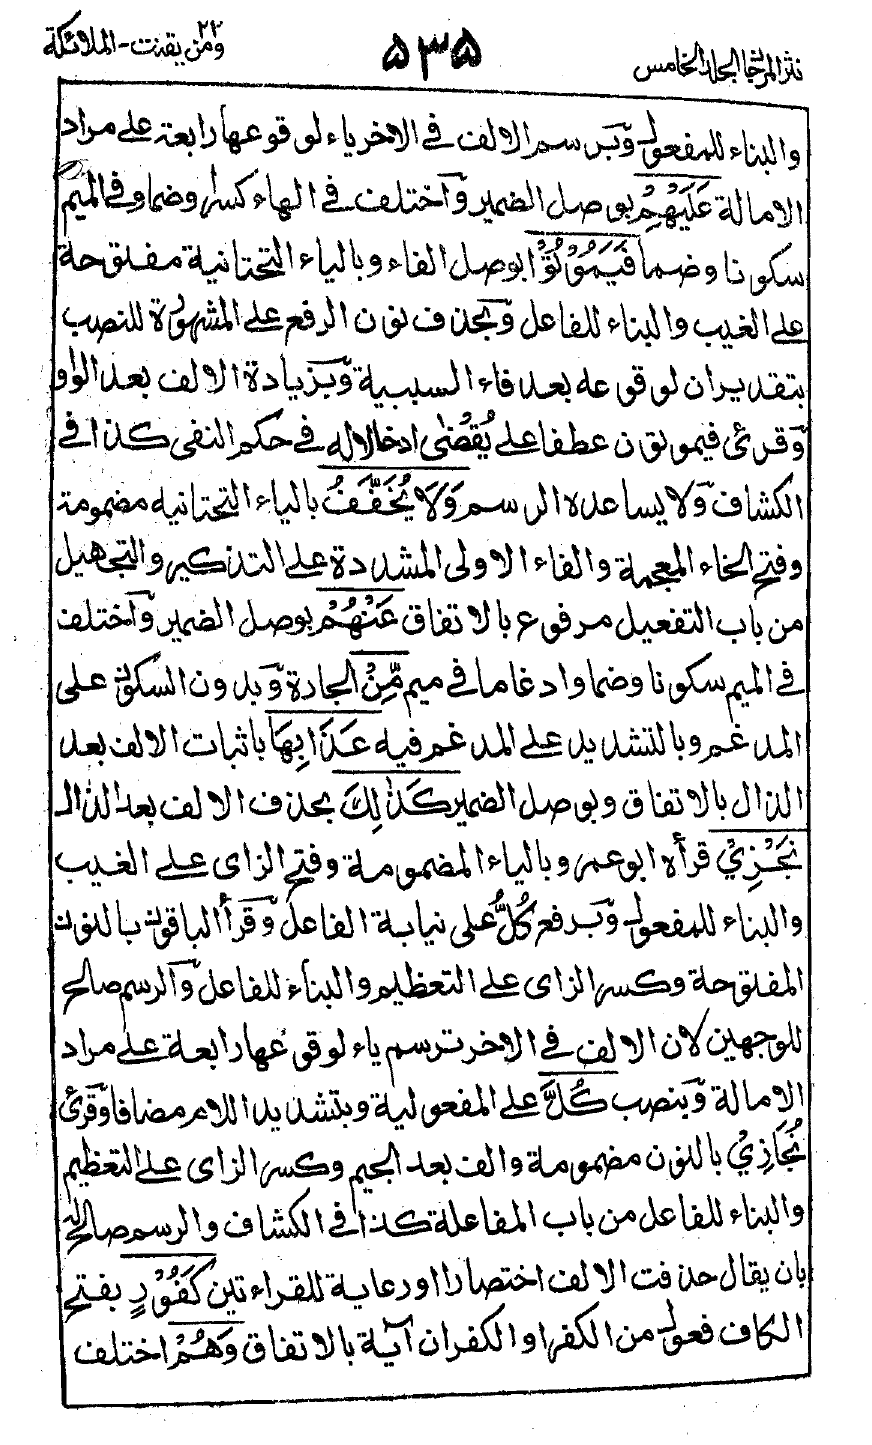 نثر المرجان المجلد الخامس
٥٣٥
٢٢ ومن يقنت - الملائكة
والبناء للمفعول وبرسم الالف في الاخر ياء لوقوعها رابعة على مراد
الامالة عَلَيْهِمْ بوصل الضمير واختلف في الهاء كسرا وضما وفي الميم
سكونا وضما فَيَمُوْتُوْا بوصل الفاء وبالياء التحتانية مفتوحة
على الغيب والبناء للفاعل وبحذف نون الرفع على المشهورة للنصب
بتقدير ان لوقوعه بعد فاء السببية وبزيادة الالف بعد الواو
وقرئ فيموتون عطفا على يُقْضٰى ادخالا له في حكم النفى كذا في
الكشاف ولا يساعده الرسم وَلَا يُخَفَّفُ بالياء التحتانية مضمومة
وفتح الخاء المعجمة والفاء الاولى المشددة على التذكير والتجهيل
من باب التفعيل مرفوع بالاتفاق عَنْهُمْ بوصل الضمير واختلف
في الميم سكونا وضما وادغاما في ميم مِّنْ الجارة وبدون السكون على
المدغم وبالتشديد على المدغم فيه عَذَابِهَا باثبات الالف بعد
الذال بالاتفاق وبوصل الضمير كَذٰلِكَ بحذف الالف بعد الذال
نَجْزِيْ قرأه ابو عمرو بالياء المضمومة وفتح الزاى على الغيب
والبناء للمفعول وبرفع كُلُّ على نيابة الفاعل وقرأ الباقون بالنون
المفتوحة وكسر الزاى على التعظيم والبناء للفاعل والرسم صالح
للوجهين لان الالف في الاخر ترسم ياء لوقوعها رابعة على مراد
الامالة وبنصب كُلَّ على المفعولية وبتشديد اللام مضافا وقرئ
نُجَازِيْ بالنون مضمومة والف بعد الجيم وكسر الزاى على التعظيم
والبناء للفاعل من باب المفاعلة كذا في الكشاف والرسم صالح له
بان يقال حذفت الالف اختصارا او رعاية للقراءتين كَفُوْرٍ بفتح
الكاف فعول من الكفر او الكفران آية بالاتفاق وَهُمْ اختلف